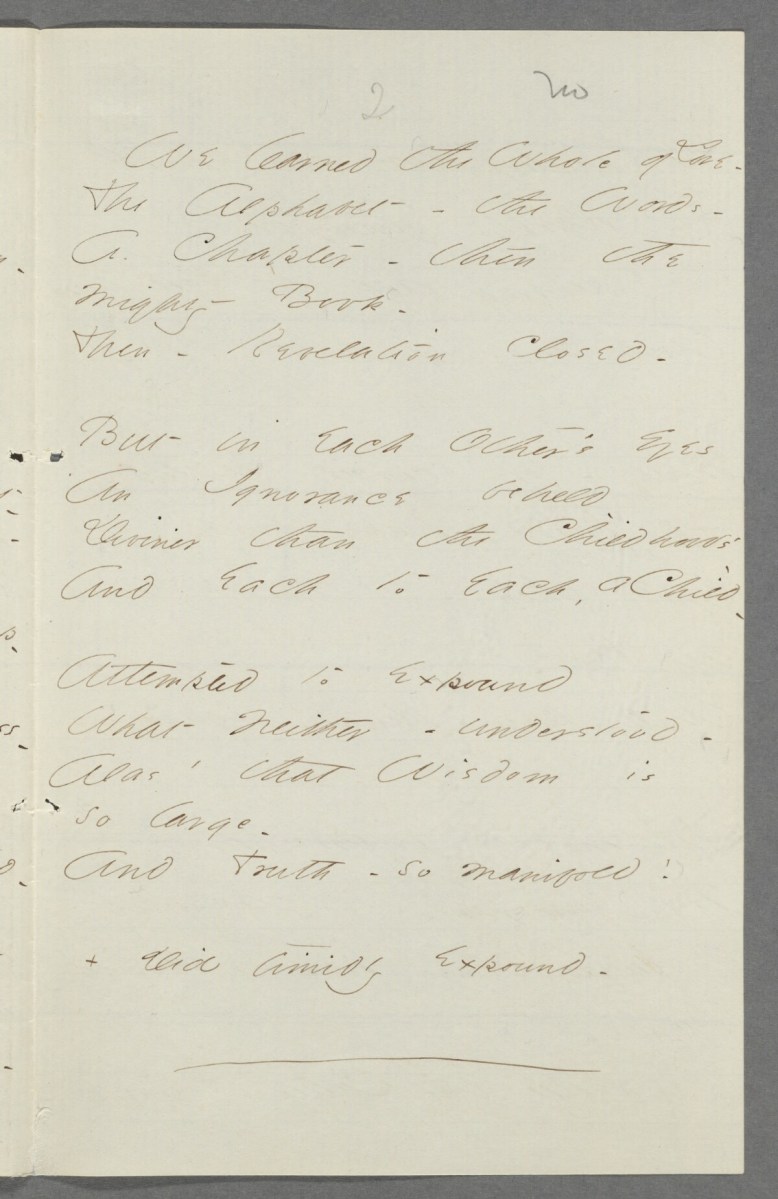 2 no
We learned the Whole of Love -
The Alphabet - the Words -
A Chapter - then the
mighty Book -
Then - Revelation closed -
But in Each Other's Eyes
An Ignorance beheld
Diviner than the Childhood's
And Each to Each, a Child -
Attempted to Expound
What neither - understood -
Alas! that Wisdom is
so large -
And Truth - so manifold!
+ Did timidly Expound -